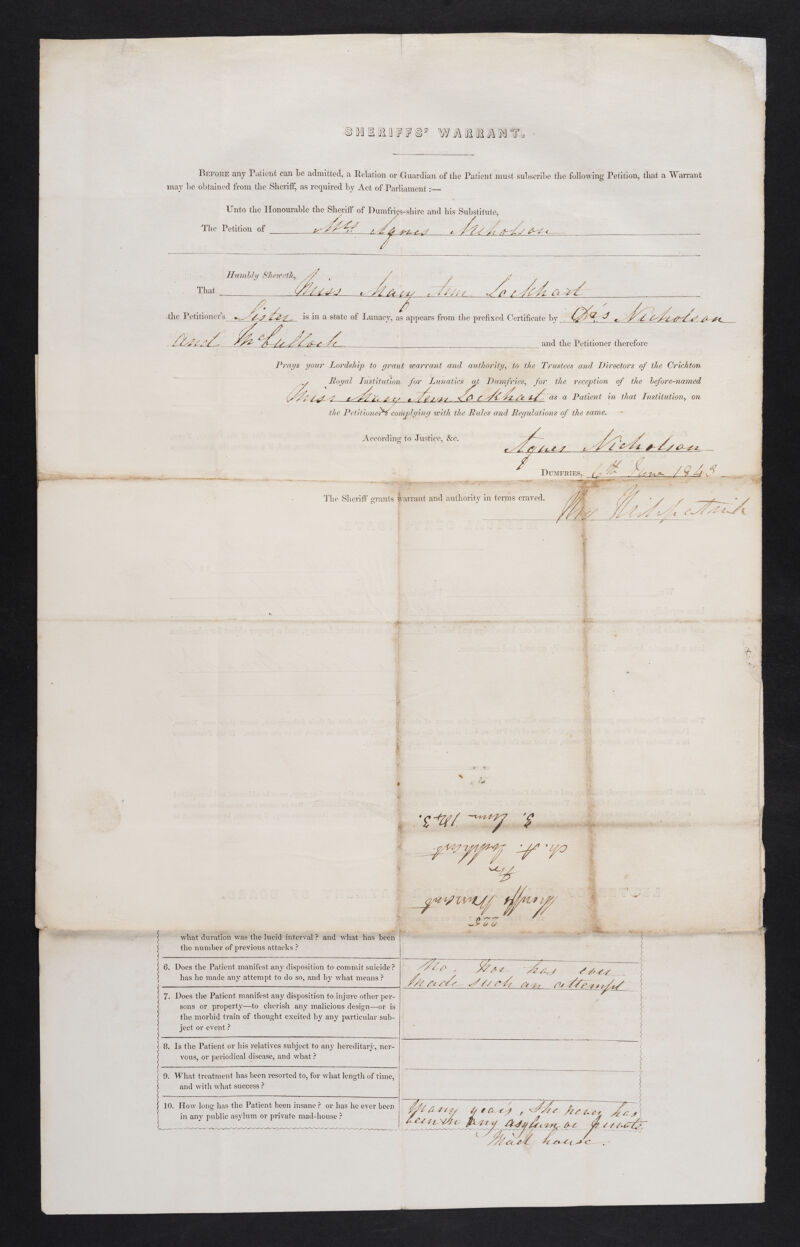 SHERIFFS' WARRANT.
BEFORE any Patient can be admitted, a Relation or Guardian of the Patient must subscribe the following Petition, that a Warrant
may be obtained from the Sheriff, as required by Act of Parliament :—
Unto the Honourable the Sheriff of Dumfries-shire and his Substitute,
The Petition of Mrs Agnes Nicholson
Humbly Sheweth,
That Miss Mary Ann Lockhart
the Petitioner's Sister is in a state of Lunacy, as appears from the prefixed Certificate by Drs Nicholson
and McCulloch and the Petitioner therefore
Prays your Lordship to grant warrant and authority, to the Trustees and Directors of the Crichton
Royal Institution for Lunatics at Dumfries, for the reception of the before-named
Miss Mary Ann Lockhart as a Patient in that Institution, on
the Petitioner's complying with the Rules and Regulations of the same.
According to Justice, &c.
Agnes Nicholson
DUMFRIES, 6th June 1843
The Sheriff grants warrant and authority in terms craved.
Kirkpatrick
225
Sheriffs Warrant
For
M. A. Lockhart
3. June 1843.
what duration was the lucid interval? and what has been
the number of previous attacks?
6. Does the Patient manifest any disposition to commit suicide?
has he made any attempt to do so, and by what means?
No, Nor has ever
made such an attempt
7. Does the Patient manifest any disposition to injure other per-
sons or property—to cherish any malicious design—or is
the morbid train of thought excited by any particular sub-
ject or event?
8. Is the Patient or his relatives subject to any hereditary, ner-
vous, or periodical disease, and what?
9. What treatment has been resorted to, for what length of time,
and with what success?
10. How long has the Patient been insane? or has he ever been
in any public asylum or private mad-house?
Many years, She never has
been in any asylum or private
Mad house.